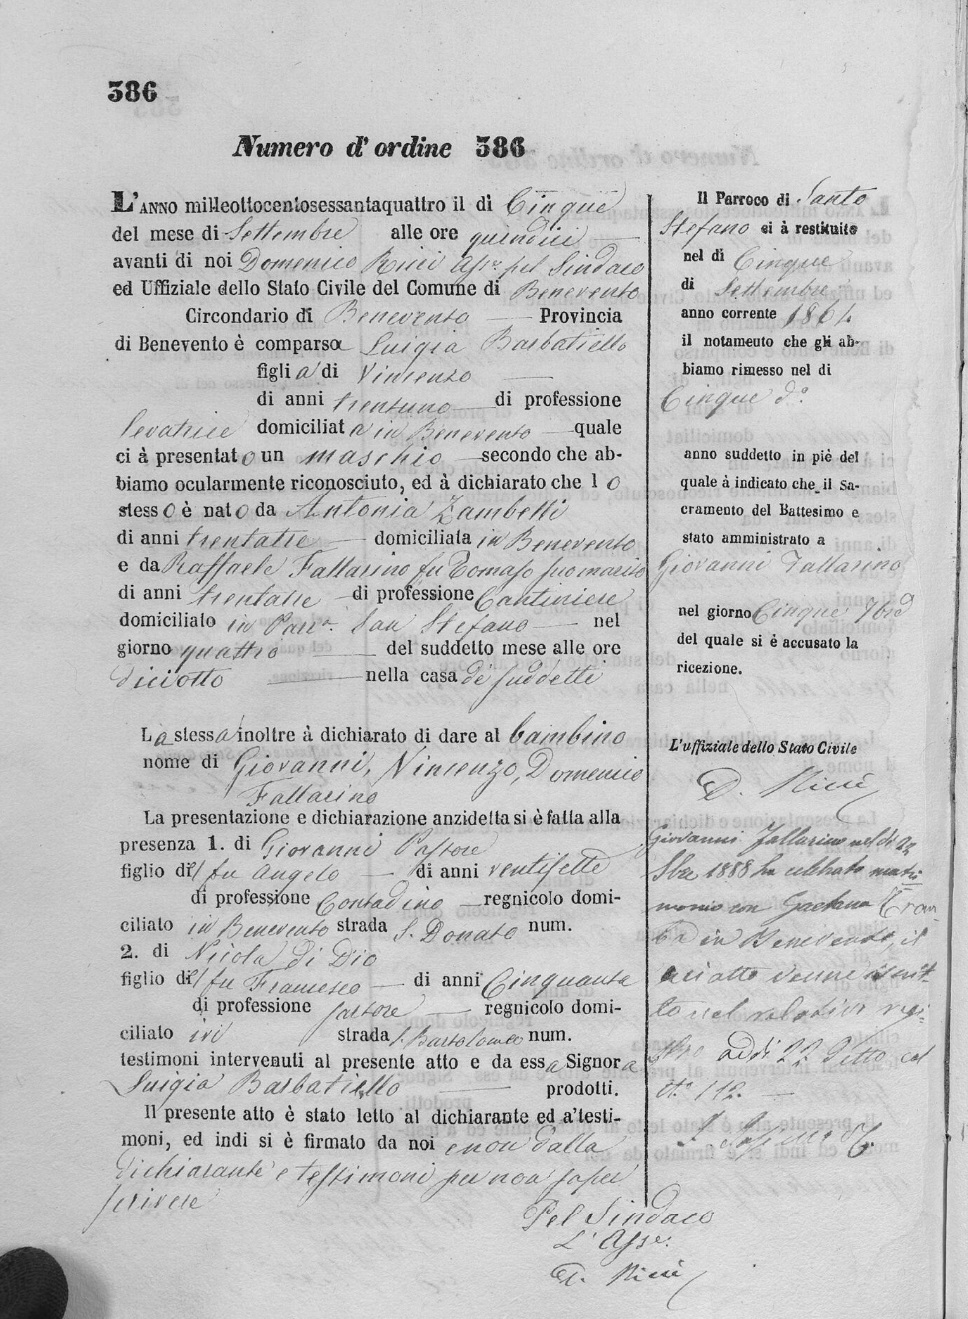 386
Numero d'ordine 386
L'ANNO milleottocentosessantaquattro il dì Cinque
del mese di Settembre alle ore quindici
avanti di noi Domenico Ricci Assre pel Sindaco
ed Uffiziale dello Stato Civile del Comune di Benevento
Circondario di Benevento Provincia
di Benevento è comparsa Luigia Barbatiello
figlia di Vincenzo
di anni trentuno di professione
levatrice domiciliata in Benevento quale
ci à presentato un maschio secondo che ab-
biamo ocularmente riconosciuto, ed à dichiarato che lo
stesso è nato da Antonia Zambelli
di anni trentatre domiciliata in Benevento
e da Raffaele Fallarino fu Tomaso suo marito
di anni trentatre di professione Cantiniere
domiciliato in Parra San Stefano nel
giorno quattro del suddetto mese alle ore
diciotto nella casa de' suddetti
La stessa inoltre à dichiarato di dare al bambino
nome di Giovanni, Vincenzo, Domenico
Fallarino
La presentazione e dichiarazione anzidetta si è fatta alla
presenza 1. di Giovanni Pastore
figlio del fu Angelo di anni ventisette
di professione Contadino regnicolo domi-
ciliato in Benevento strada S. Donato num.
2. di Nicola di Dio
figlio del fu Francesco di anni Cinquanta
di professione sartore regnicolo domi-
ciliato ivi strada S. Bartolomeo num.
testimoni intervenuti al presente atto e da essa Signora
Luigia Barbatiello prodotti.
Il presente atto è stato letto al dichiarante ed a' testi-
moni, ed indi si è firmato da noi e non dalla
dichiarante e testimoni per non saper
scrivere
Pel Sindaco
L'Assre.
D. Ricci
Il Parroco di Santo
Stefano ci à restituito
nel dì Cinque
di Settembre
anno corrente 1864.
il notamento che gli ab-
biamo rimesso nel dì
Cinque do.
anno suddetto in piè del
quale à indicato che il Sa-
cramento del Battesimo e
stato amministrato a
Giovanni Fallarino
nel giorno Cinque 7bre
del quale si è accusato la
ricezione.
L'uffiziale dello Stato Civile
D. Ricci
Giovanni Fallarino nel dì 22
8bre 1888 ha celebrato matri
monio con Gaetana
in Benevento, il
cui atto venne iscrit-
to nel relativo regi-
stro addì 22 detto al
n. 112.